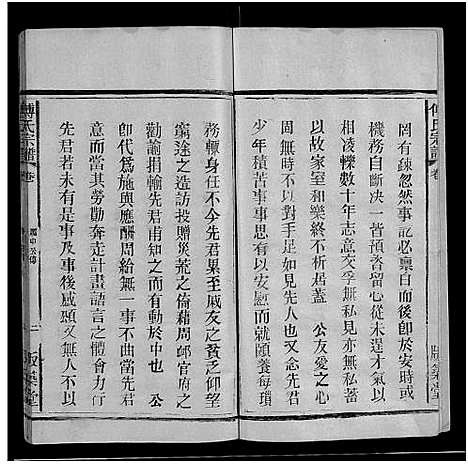 傅氏宗譜
卷
罔有疎忽然事記必稟白而後卽於安時或
機務自斷決一咨 公亦未逞才氣以
相凌轢數十年志意交孚無私見亦無私蓄
以故家室和樂終不析居蓋 公友愛之心
周無時不以對手足如見先人也又念先君
少年積苦事事思有以安慰而就頤養每瑣
務輒身任不令先君累至戚友之貧乏仰望
窮途之造訪投贈災荒之倫藉周邮官府之
勸諭捐輸先君甫知之而 公
卽代爲施與應酬周給無一事不曲當先君
意而當其勞勩奔走計畫語言之體會力行
先君若未有是事及事後感頤又無人不以
傅氏宗譜
卷
版築堂